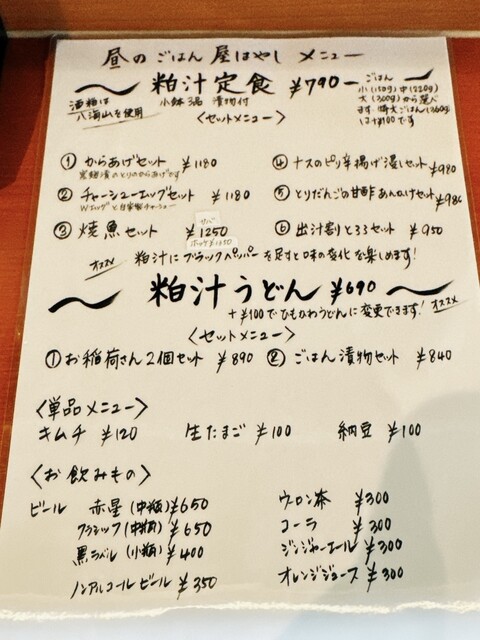 昼のごはん屋はやし メニュー
〜 粕汁定食 ¥790-
小鉢3品 漬物付
酒粕は
八海山を使用
ごはん
小(150g)中(220g)
大(300g)から選べ
ます。特大ごはん(360g)
は+¥100です
〈セットメニュー〉
① からあげセット ¥1180
黒麹漬のとりのからあげです
② チャーシューエッグセット ¥1180
Wエッグと自家製チャーシュー
③ 焼魚セット サバ ¥1250
ホッケ¥1350
④ ナスのピリ辛揚げ浸しセット ¥980
⑤ とりだんごの甘酢あんかけセット ¥980
⑥ 出汁割りとろろセット ¥950
オススメ 粕汁にブラックペッパーを足すと味の変化を楽しめます!
〜 粕汁うどん ¥690 〜
+¥100でひもかわうどんに変更できます! オススメ
〈セットメニュー〉
① お稲荷さん2個セット ¥890 ② ごはん漬物セット ¥840
〈単品メニュー〉
キムチ ¥120 生たまご ¥100 納豆 ¥100
〈お飲みもの〉
ビール 赤星(中瓶)¥650
クラシック(中瓶)¥650
黒ラベル(小瓶)¥400
ノンアルコールビール ¥350
ウーロン茶 ¥300
コーラ ¥300
ジンジャーエール ¥300
オレンジジュース ¥300